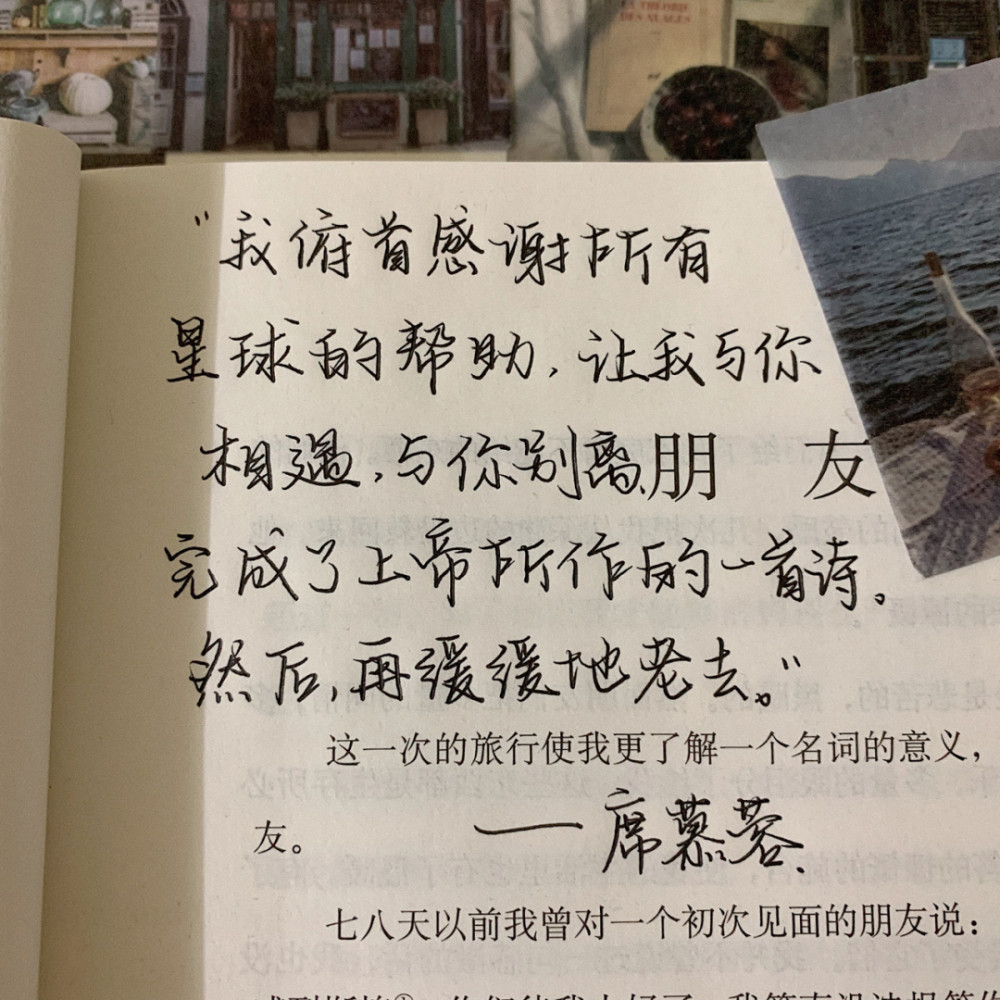 THÉORIE
DES NUAGES
"我俯首感谢所有
星球的帮助,让我与你
相遇,与你别离、
朋 友
完成了上帝所作的一首诗。
然后,再缓缓地老去。"
这一次的旅行使我更了解一个名词的意义,
友。
——席慕蓉、
七八天以前我曾对一个初次见面的朋友说: